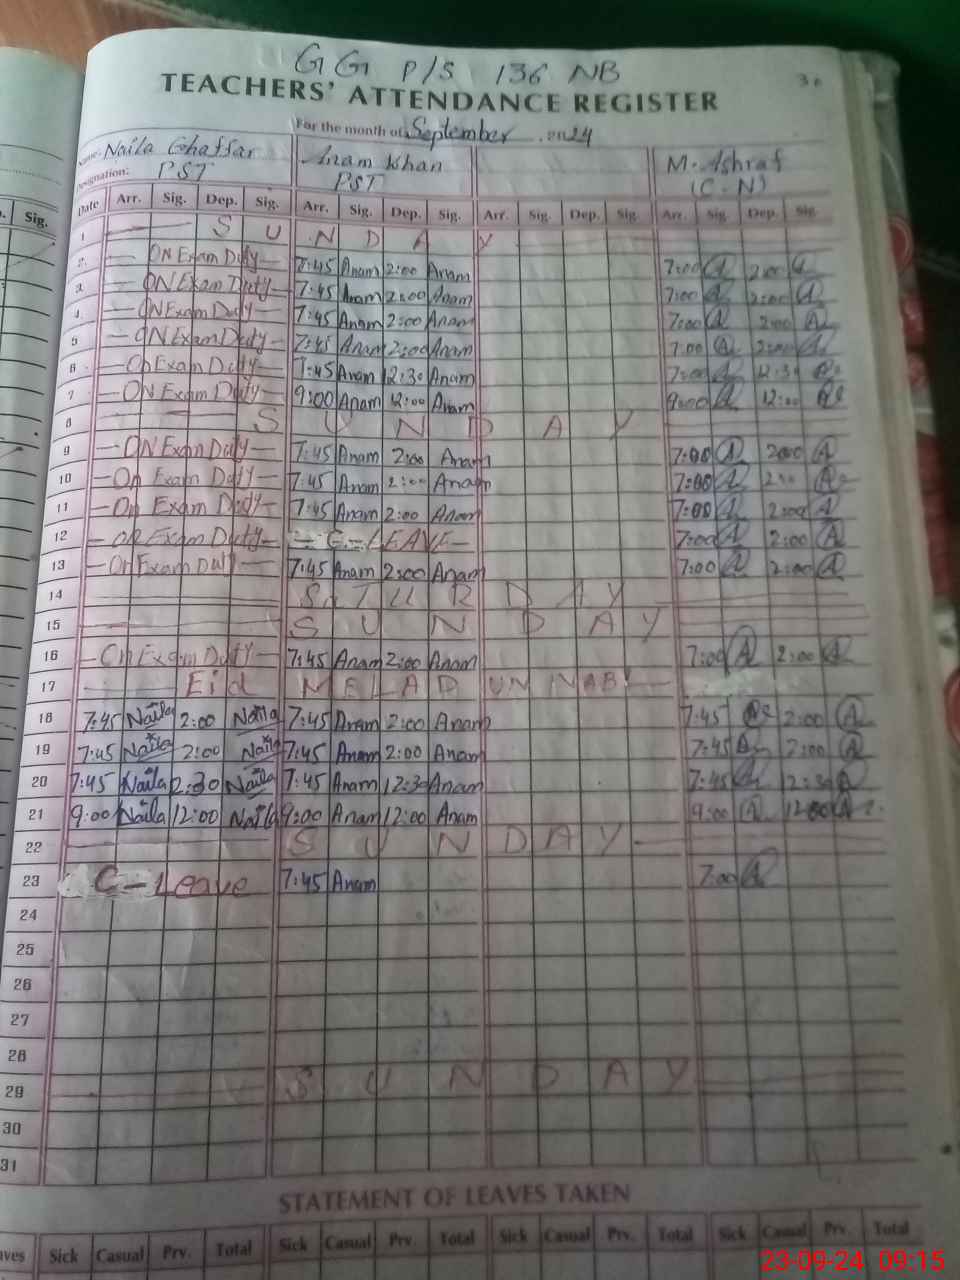 GG P/S 136 NB
TEACHERS' ATTENDANCE REGISTER
30
For the month of September 2024
Name: Naila Ghaffar Anam Khan M. Ashraf
Designation: PST PST (C.N)
Date Arr. Sig. Dep. Sig. Arr. Sig. Dep. Sig. Arr. Sig. Dep. Sig. Arr. Sig. Dep. Sig.
Sig.
1 S U N D A Y
2 ON Exam Duty 7:45 Anam 2:00 Anam 7:00 2:00
3 ON Exam Duty 7:45 Anam 2:00 Anam 7:00 2:00
4 ON Exam Duty 7:45 Anam 2:00 Anam 7:00 2:00
5 ON Exam Duty 7:45 Anam 2:00 Anam 7:00 2:00
6 On Exam Duty 7:45 Anam 12:30 Anam 7:00 12:30
7 ON Exam Duty 9:00 Anam 12:00 Anam 9:00 12:00
8 S U N D A Y
9 ON Exam Duty 7:45 Anam 2:00 Anam 7:00 2:00
10 On Exam Duty 7:45 Anam 2:00 Anam 7:00 2:00
11 On Exam Duty 7:45 Anam 2:00 Anam 7:00 2:00
12 on Exam Duty C-LEAVE 7:00 2:00
13 On Exam Duty 7:45 Anam 2:00 Anam 7:00 2:00
14 S A T U R D A Y
15 S U N D A Y
16 On Exam Duty 7:45 Anam 2:00 Anam 7:00 2:00
17 Eid MELAD UN NABI
18 7:45 Naila 2:00 Naila 7:45 Anam 2:00 Anam 7:45 2:00
19 7:45 Naila 2:00 Naila 7:45 Anam 2:00 Anam 7:45 2:00
20 7:45 Naila 12:30 Naila 7:45 Anam 12:30 Anam 7:45 12:30
21 9:00 Naila 12:00 Naila 9:00 Anam 12:00 Anam 9:00 12:00
22 S U N D A Y
23 C-Leave 7:45 Anam 7:00
24
25
26
27
28
29 S U N D A Y
30
31
STATEMENT OF LEAVES TAKEN
Sick Casual Prv. Total Sick Casual Prv. Total Sick Casual Prv. Total Sick Casual Prv. Total
23-09-24 09:15